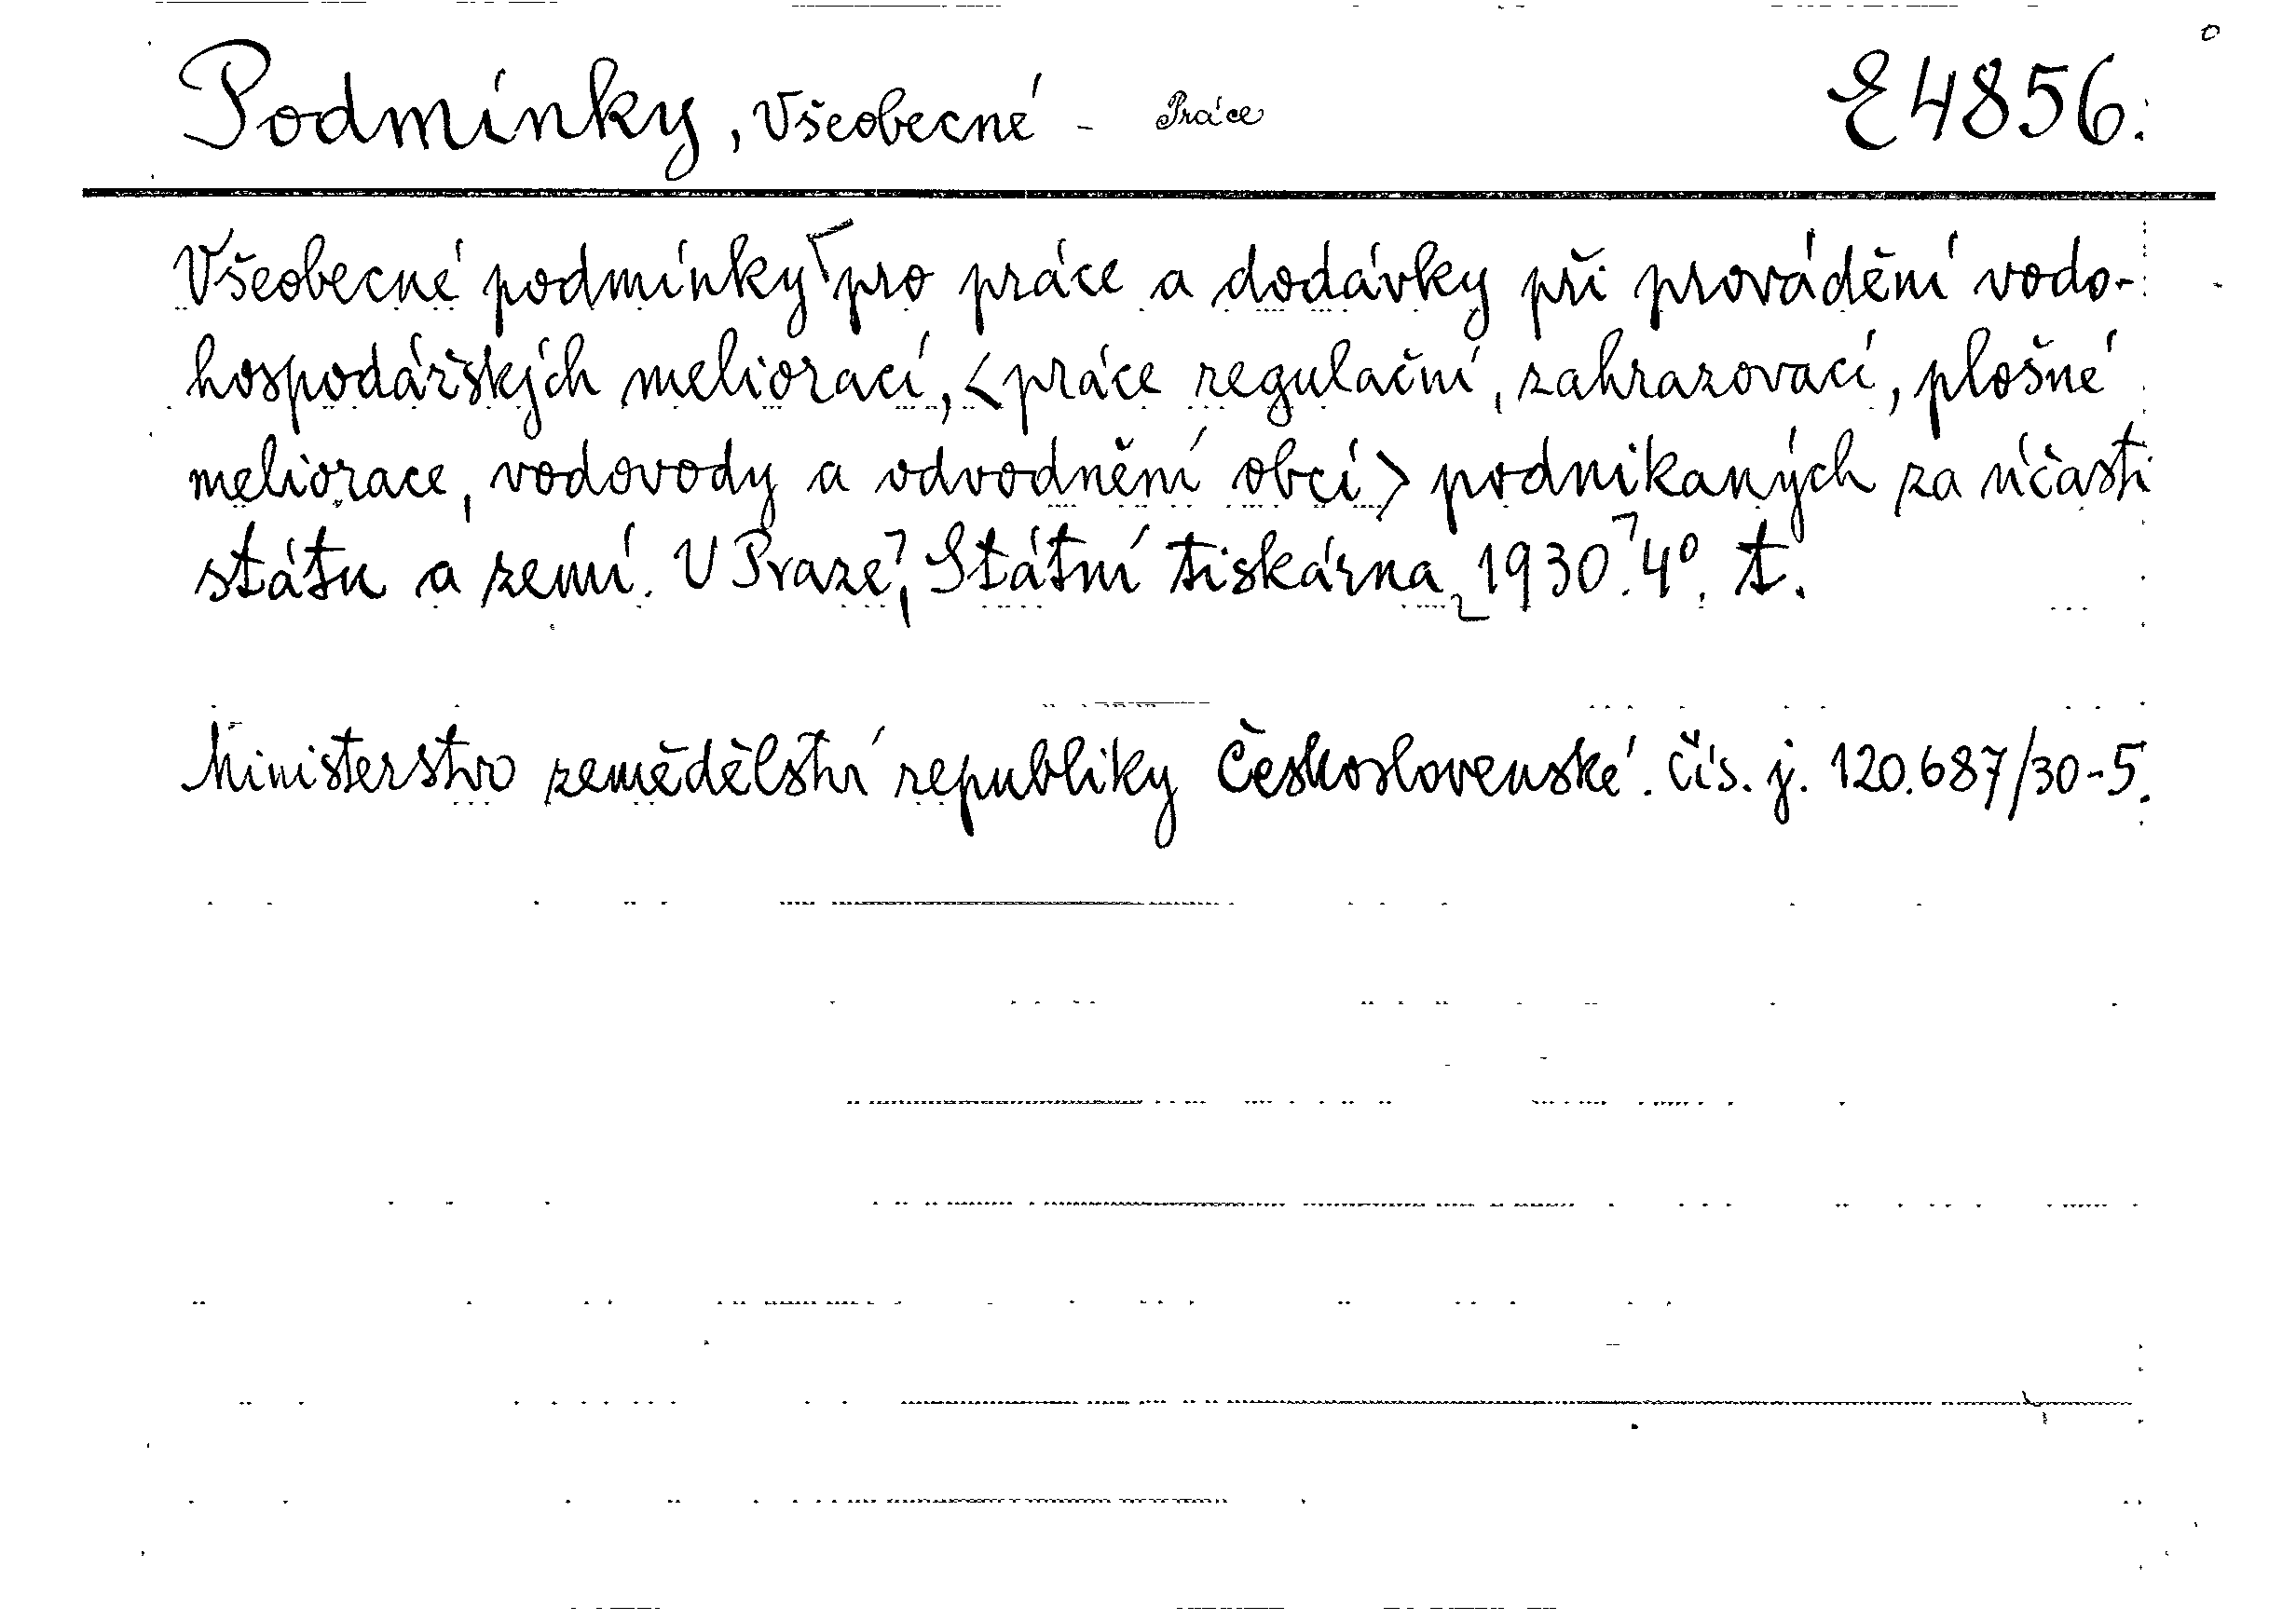 Podmínky, Všeobecné - Práce E 4856.
Všeobecné podmínky pro práce a dodávky při provádění vodo-
hospodářských meliorací, <práce regulační, zahrazovací, plošné
meliorace, vodovody a odvodnění obcí> podnikaných za účasti
státu a zemí. V Praze, Státní tiskárna, 1930. 4°. t.
Ministerstvo zemědělství republiky Československé. Čís. j. 120.687/30-5.